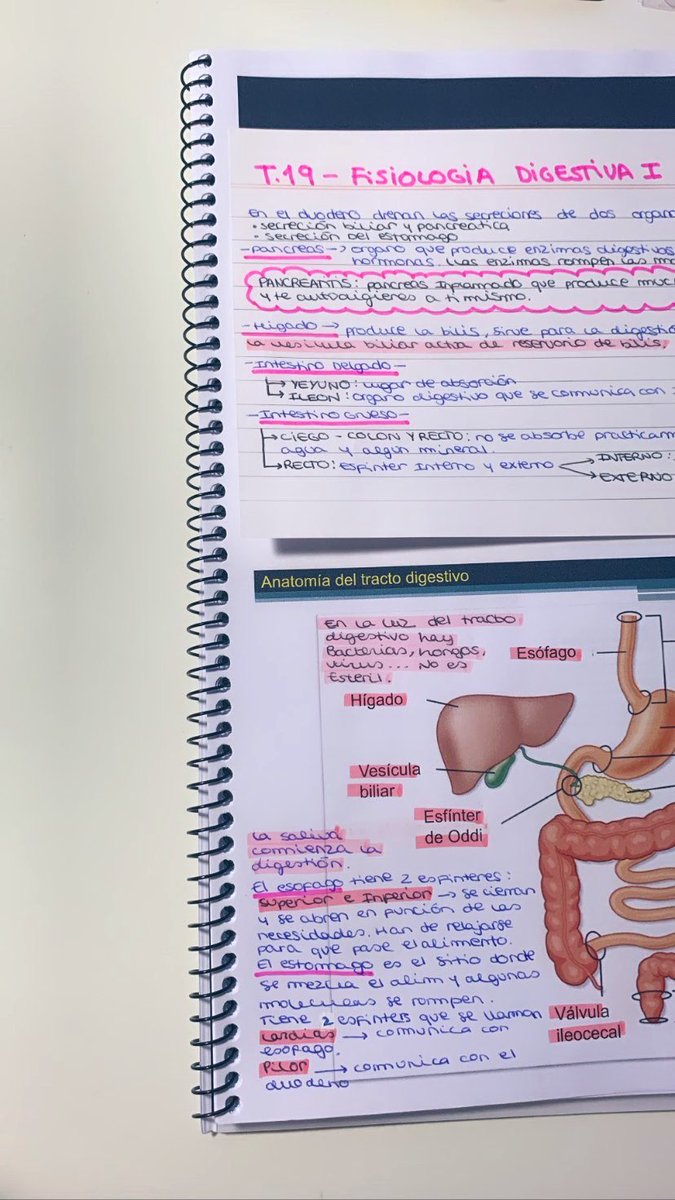 T.19 - FISIOLOGIA DIGESTIVA I
En el duodeno drenan las secreciones de dos organo
• secreción biliar y pancreatica
- secreción del estomago
- Pancreas → organo que produce enzimas digestivos
hormonas. Las enzimas rompen las
PANCREATITIS: pancreas inflamado que produce muc
y te autodigieres a ti mismo.
- Higado → produce la bilis, sirve para la digestió
la vesicula biliar actua de reservorio de bilis.
- Intestino Delgado -
→ YEYUNO: lugar de absorción
→ ILEON: organo digestivo que se comunica con
- Intestino Grueso -
→ CIEGO - COLON Y RECTO: no se absorbe practicam
agua y algun mineral.
→ RECTO: esfinter interno y externo → INTERNO:
→ EXTERNO
Anatomía del tracto digestivo
En la luz del tracto
digestivo hay
Bacterias, hongos,
virus... No es
Esteril.
Esófago
Hígado
Vesícula
biliar
Esfínter
de Oddi
La saliva
comienza la
digestión.
El esofago tiene 2 esfinteres:
superior e inferior → se cierran
y se abren en función de las
necesidades. Han de relajarse
para que pase el alimento.
El estomago es el sitio donde
se mezcla el alim y algunas
moleculas se rompen.
Tiene 2 esfinters que se llaman
cardias → comunica con
esofago.
Pilor → comunica con el
duodeno
Válvula
ileocecal